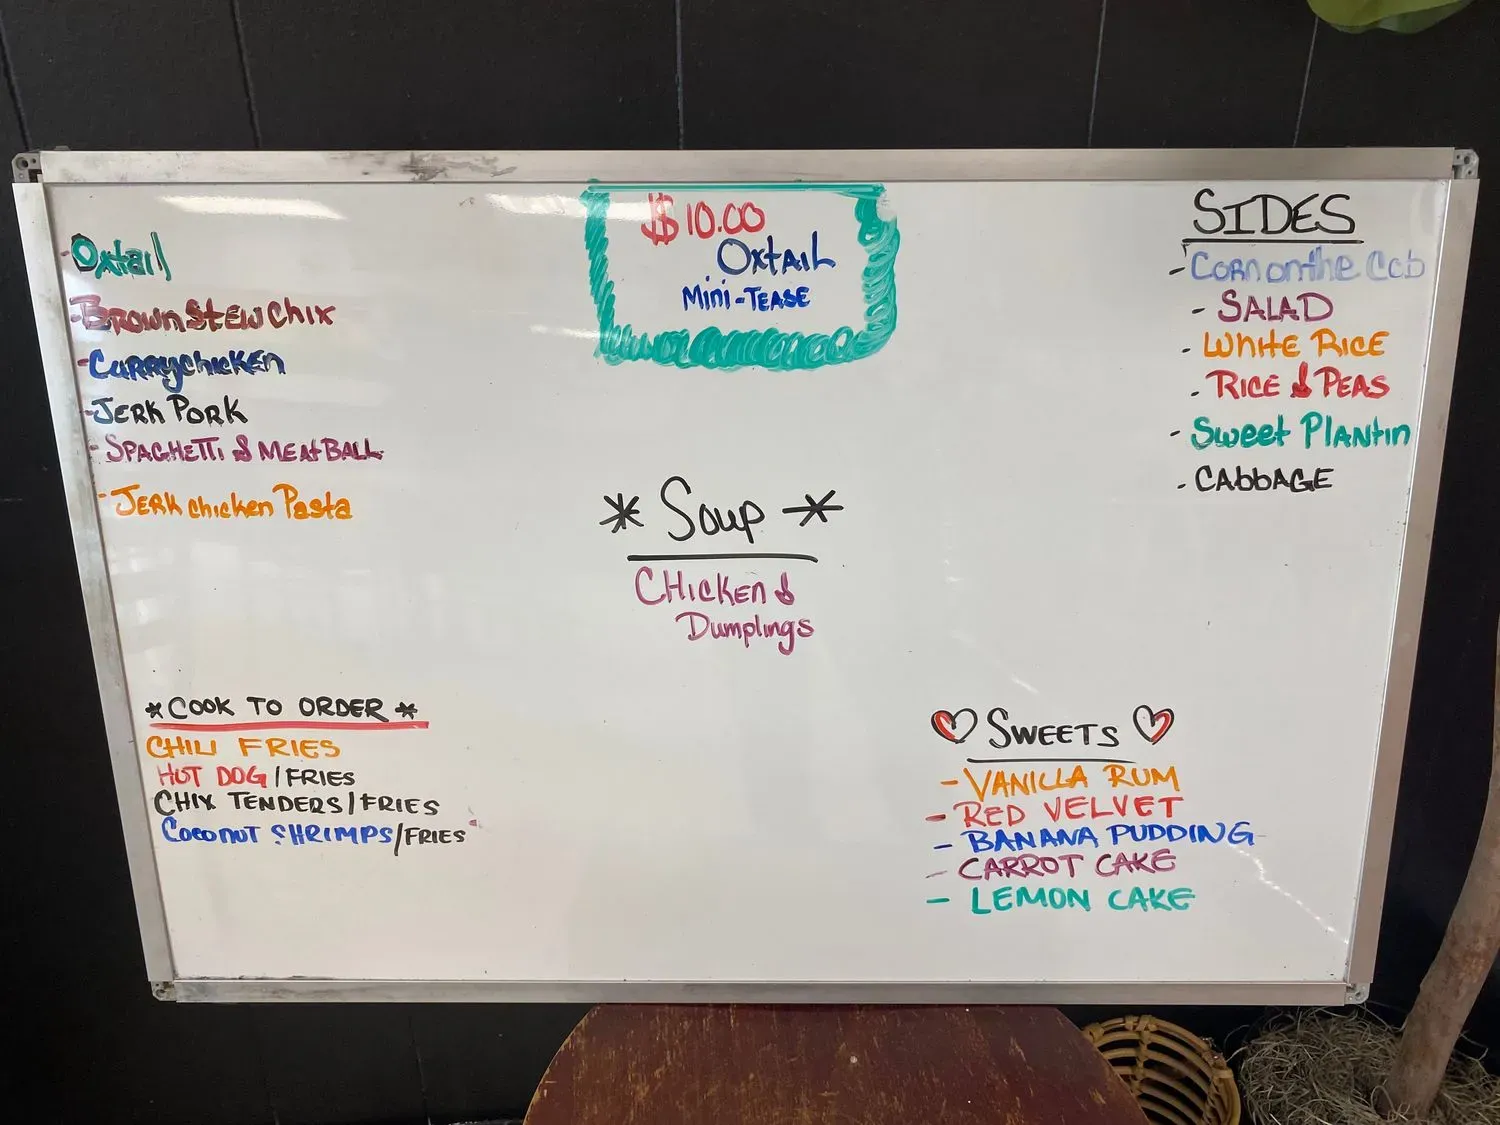 $10.00
Oxtail
Mini-Tease
- Oxtail
- Brown Stew Chix
- Curry chicken
- Jerk Pork
- Spaghetti & Meatball
- Jerk chicken Pasta
* Soup *
Chicken &
Dumplings
SIDES
- Corn on the Cob
- SALAD
- White Rice
- Rice & Peas
- Sweet Plantin
- Cabbage
*COOK TO ORDER*
CHILI FRIES
HOT DOG/FRIES
CHIX TENDERS/FRIES
Coconut SHRIMPS/FRIES
♡ SWEETS ♡
- VANILLA RUM
- RED VELVET
- BANANA PUDDING
- CARROT CAKE
- LEMON CAKE